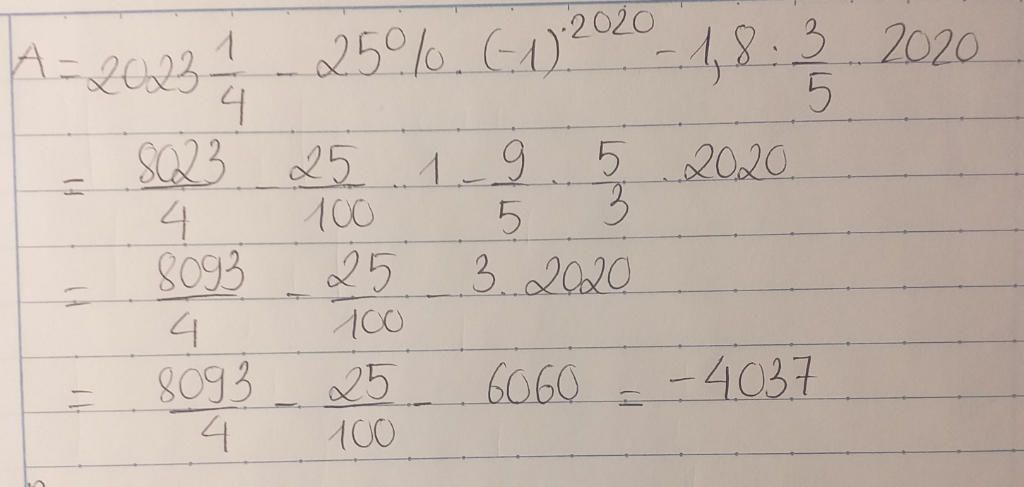 A = 2023 1/4 - 25% . (-1)^2020 - 1,8 : 3/5 . 2020
= 8023/4 - 25/100 . 1 - 9/5 . 5/3 . 2020
= 8093/4 - 25/100 - 3 . 2020
= 8093/4 - 25/100 - 6060 = -4037